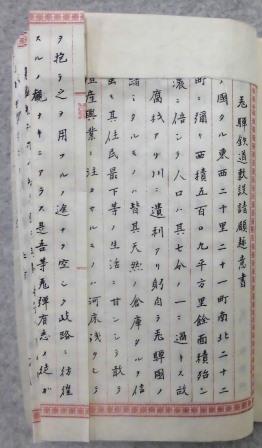 飛騨鉄道敷設請願趣意書
ノ國タル東西二十里二十一町南北二十二
町ニ彌リ面積五百〇九平方里餘面積殆ン
濃ニ倍シテ人口ハ其七分ノ一ニ過キス故
腐枝アリ川ニ遺利アリ財自ラ飛騨國ノ
諸ニタルモノハ皆其天然ノ倉庫タルヲ信
其住民最下等ノ生活ニ甘ンシテ敢テ
殖産興業ニ注カサルモノハ河床浅クシテ
ヲ抱テ之ヲ用フルノ途ナク空シク岐路ニ彷徨
スルノ観ナキニアラス是吾等飛騨有志ノ徒カ